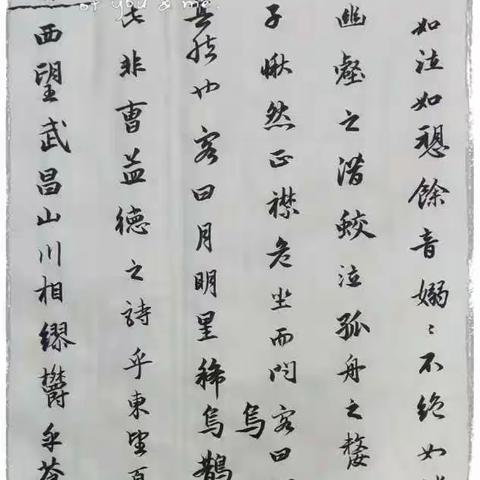 of you & me.
如泣如愬餘音嫋〻不絕如
幽壑之潛蛟泣孤舟之嫠
子愀然正襟危坐而問客曰
烏
其然也客曰月明星稀烏鵲
此非曹孟德之詩乎東望夏
西望武昌山川相繆鬱乎蒼